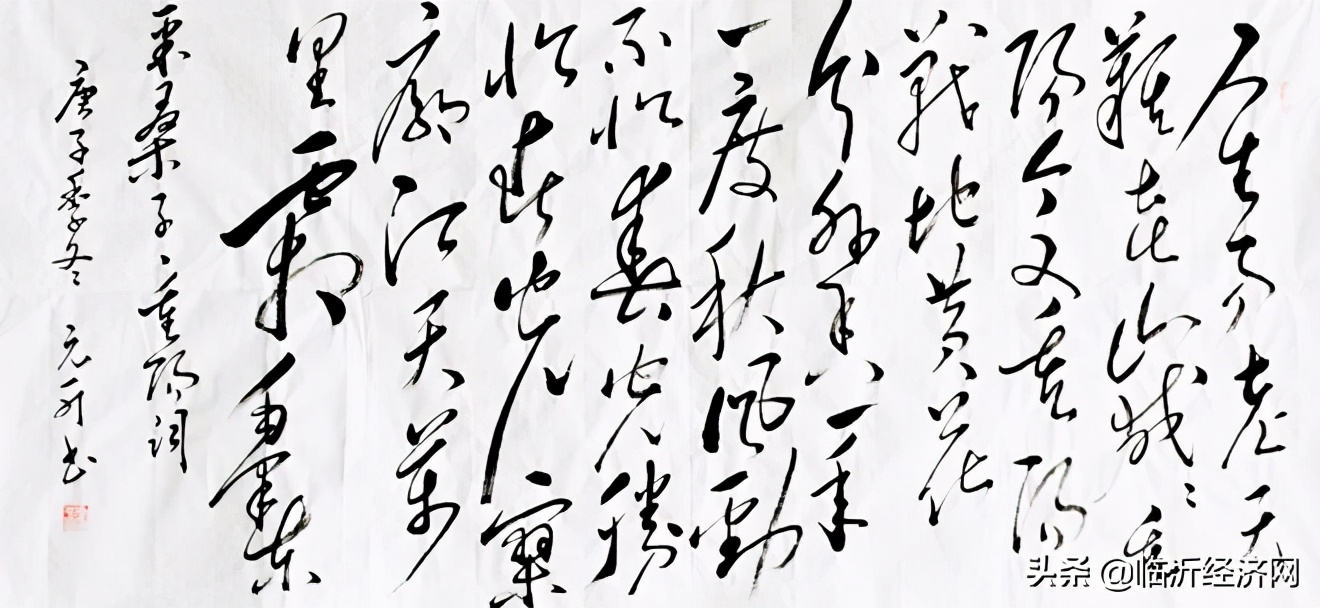 人生易老天
難老岁〻重
陽今又重陽
戰地黄花
分外香一年
一度秋风劲
不似春光勝
似春光寥
廓江天萬
里霜毛泽东
采桑子·重陽词
庚子季冬 元书
头条 @临沂经济网